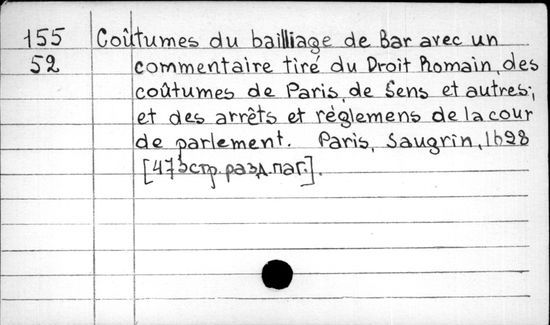 155 Coûtumes du bailliage de Bar avec un
52 commentaire tiré du Droit Romain, des
coûtumes de Paris, de Sens et autres;
et des arrêts et règlemens de la cour
de parlement. Paris, Saugrin, 1698
[473 стр. разд. паг.].